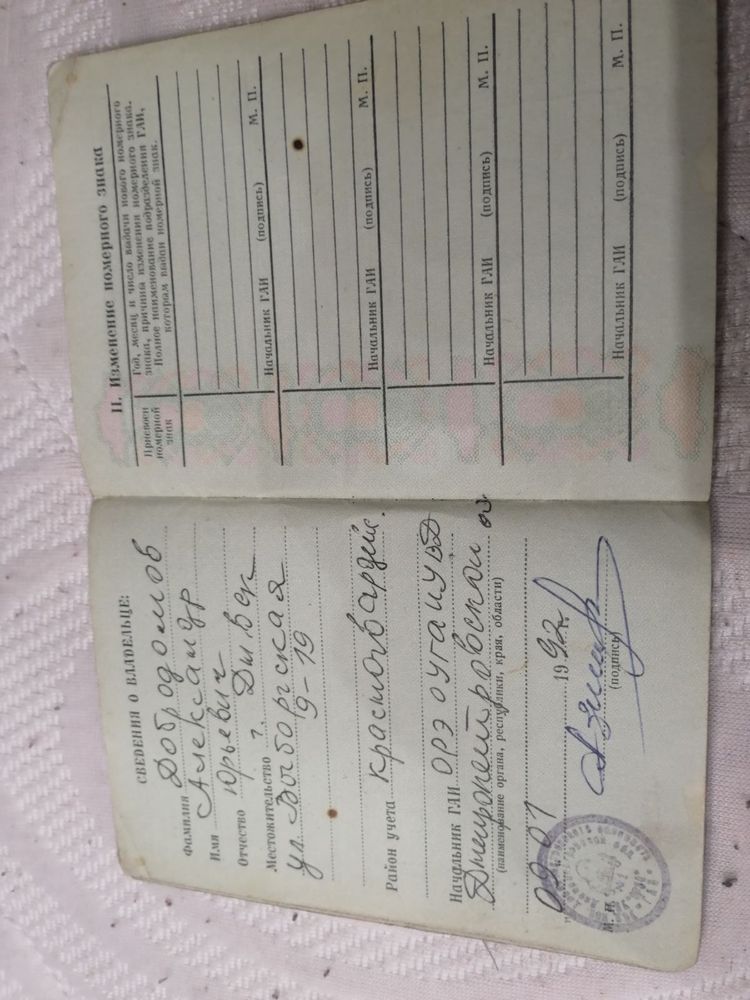 СВЕДЕНИЯ О ВЛАДЕЛЬЦЕ:
Фамилия Добродомов
Имя Александр
Отчество Юрьевич
Местожительство г.
ул. Выборгская
9-19
Район учета Красногвардейс.
Начальник ГАИ ОРЭ ОУГАИ УВД
Днепропетровской
(наименование органа, республики, края, области)
09 01 1992г.
М. П. (подпись)
II. Изменение номерного знака
Присвоен номерной знак
Год, месяц и число выдачи нового номерного
знака, причина изменения номерного знака.
Полное наименование подразделения ГАИ,
которым выдан номерной знак.
Начальник ГАИ (подпись) М. П.
Начальник ГАИ (подпись) М. П.
Начальник ГАИ (подпись) М. П.
Начальник ГАИ (подпись) М. П.